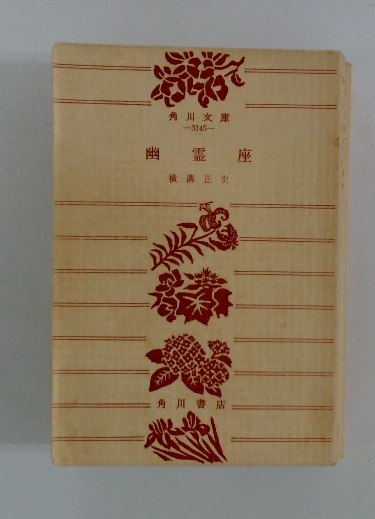 角川文庫
—3145—
幽霊座
横溝正史
角川書店